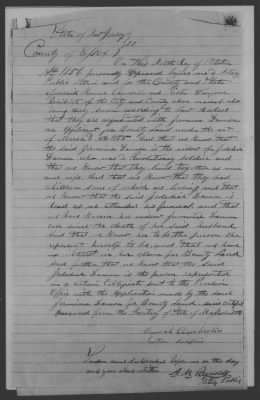 State of New Jersey
County of Essex
On this sixth day of October
AD 1856 personally Appeared before me a Notary
Public within and for the County and State
aforesaid Hannah Chamberlin and
Residents of the City and County above named who
being duly sworn according to law declare
that they are acquainted with Jemima Damon
an Applicant for Bounty Land under the act
of March 3d 1855 And that we know that
the said Jemima Damon is the widow of Jedediah
Damon who was a Revolutionary soldier and
that we know that they lived together as man
and wife And that we know that they had
children some of which are living and that
we know that the said Jedediah Damon is
dead as we attended his funeral and that
we have known his widow Jemima Damon
ever since the death of her said husband
And that we know her to be the person she
represents herself to be, and that we have
no interest in her claim for Bounty Land
And further that we know that the said
Jedediah Damon is the person represented
in a certain Certificate sent to the Pension
Office with the Application made by the said
Jemima Damon for Bounty Land said Certificate
from the Secretary of State of Massachusetts
Hannah Chamberlin
Sworn and subscribed before me on the day
and year above written
Notary Public